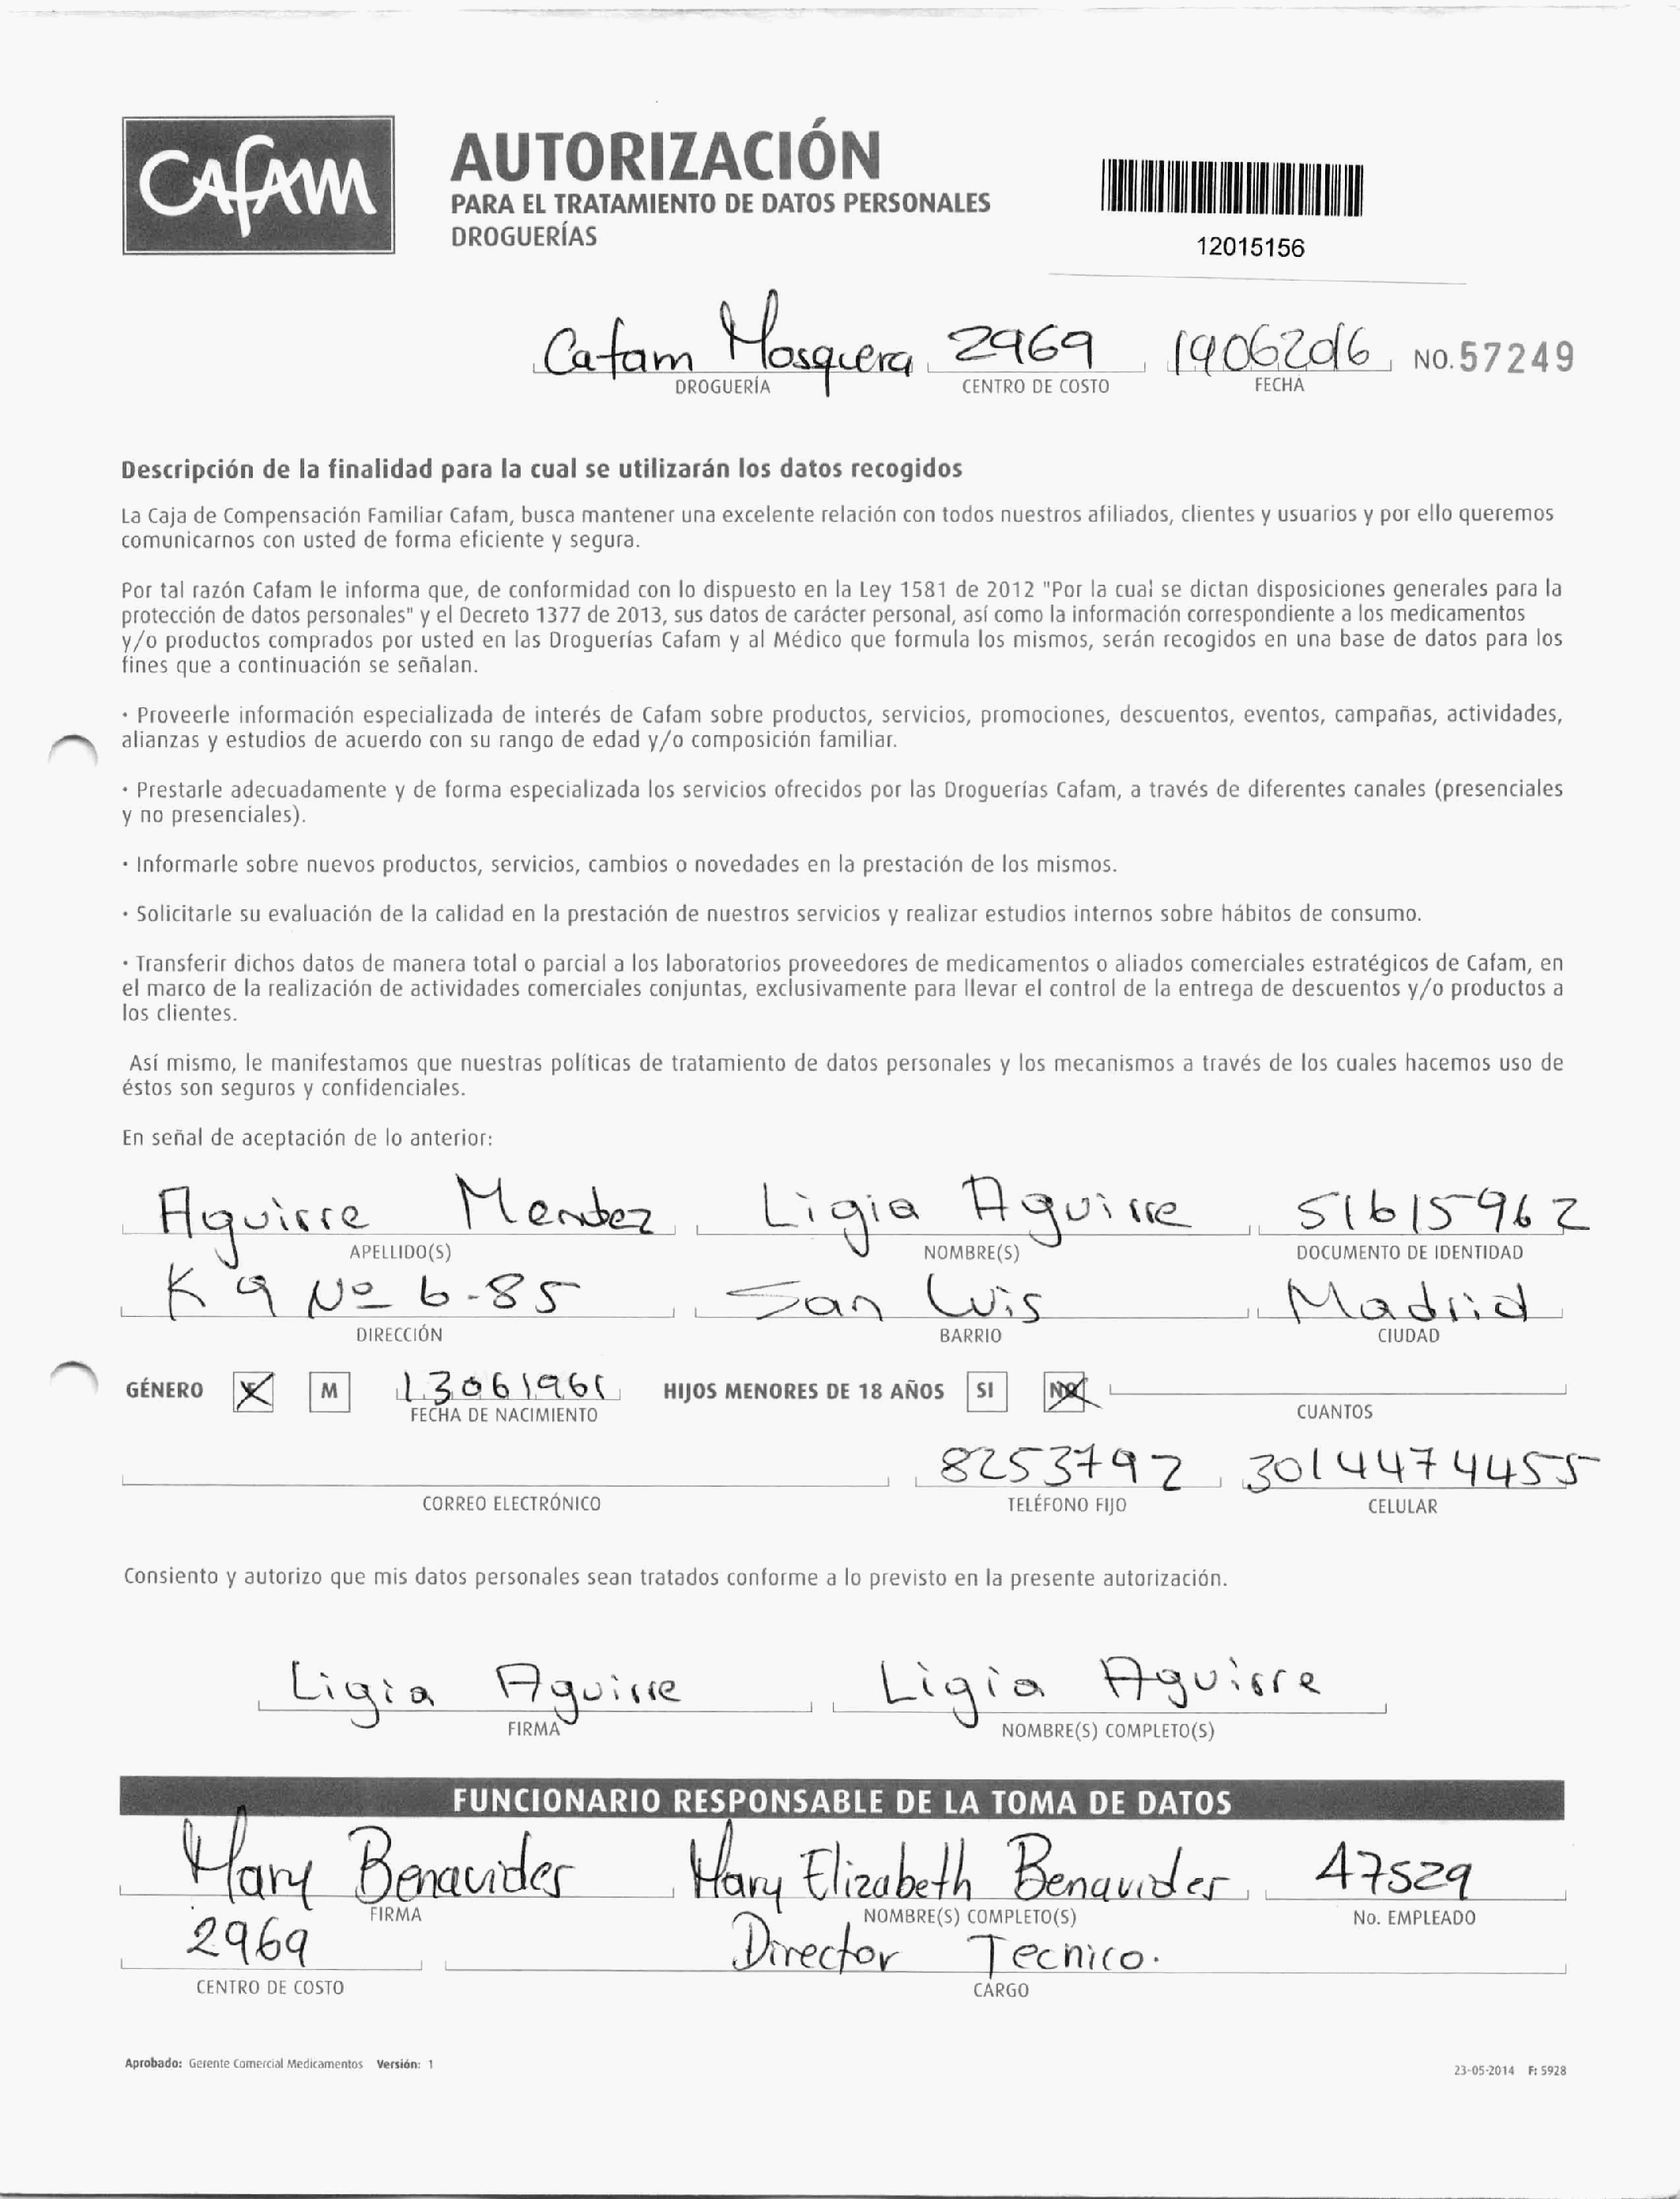 CAFAM
AUTORIZACIÓN
PARA EL TRATAMIENTO DE DATOS PERSONALES
DROGUERÍAS
12015156
Cafam Mosquera 2969 19062016 NO. 57249
DROGUERÍA CENTRO DE COSTO FECHA
Descripción de la finalidad para la cual se utilizarán los datos recogidos
La Caja de Compensación Familiar Cafam, busca mantener una excelente relación con todos nuestros afiliados, clientes y usuarios y por ello queremos
comunicarnos con usted de forma eficiente y segura.
Por tal razón Cafam le informa que, de conformidad con lo dispuesto en la Ley 1581 de 2012 "Por la cual se dictan disposiciones generales para la
protección de datos personales" y el Decreto 1377 de 2013, sus datos de carácter personal, así como la información correspondiente a los medicamentos
y/o productos comprados por usted en las Droguerías Cafam y al Médico que formula los mismos, serán recogidos en una base de datos para los
fines que a continuación se señalan.
· Proveerle información especializada de interés de Cafam sobre productos, servicios, promociones, descuentos, eventos, campañas, actividades,
alianzas y estudios de acuerdo con su rango de edad y/o composición familiar.
· Prestarle adecuadamente y de forma especializada los servicios ofrecidos por las Droguerías Cafam, a través de diferentes canales (presenciales
y no presenciales).
· Informarle sobre nuevos productos, servicios, cambios o novedades en la prestación de los mismos.
· Solicitarle su evaluación de la calidad en la prestación de nuestros servicios y realizar estudios internos sobre hábitos de consumo.
· Transferir dichos datos de manera total o parcial a los laboratorios proveedores de medicamentos o aliados comerciales estratégicos de Cafam, en
el marco de la realización de actividades comerciales conjuntas, exclusivamente para llevar el control de la entrega de descuentos y/o productos a
los clientes.
Así mismo, le manifestamos que nuestras políticas de tratamiento de datos personales y los mecanismos a través de los cuales hacemos uso de
éstos son seguros y confidenciales.
En señal de aceptación de lo anterior:
Aguirre Mendez Ligia Aguirre 51615962
APELLIDO(S) NOMBRE(S) DOCUMENTO DE IDENTIDAD
K 9 Nº 6-85 San Luis Madrid
DIRECCIÓN BARRIO CIUDAD
GÉNERO F M 13061961 HIJOS MENORES DE 18 AÑOS SI NO
FECHA DE NACIMIENTO CUANTOS
8253792 3014474455
CORREO ELECTRÓNICO TELÉFONO FIJO CELULAR
Consiento y autorizo que mis datos personales sean tratados conforme a lo previsto en la presente autorización.
Ligia Aguirre Ligia Aguirre
FIRMA NOMBRE(S) COMPLETO(S)
FUNCIONARIO RESPONSABLE DE LA TOMA DE DATOS
Mary Benavides Mary Elizabeth Benavides 47529
FIRMA NOMBRE(S) COMPLETO(S) No. EMPLEADO
2969 Director Tecnico.
CENTRO DE COSTO CARGO
Aprobado: Gerente Comercial Medicamentos Versión: 1
23-05-2014 F: 5928